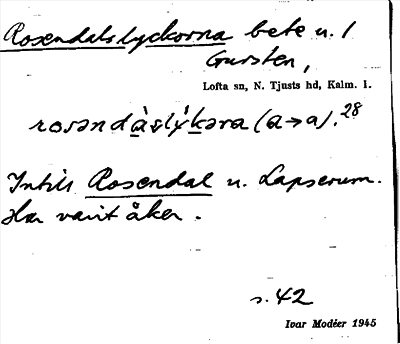 Rosendalslyckorna bete u. /
Gursten,
Lofta sn, N. Tjusts hd, Kalm. l.
rosəndàslýkəra (a→a). 28
Intill Rosendal u. Lapserum.
Har varit åker.
s. 42
Ivar Modéer 1945